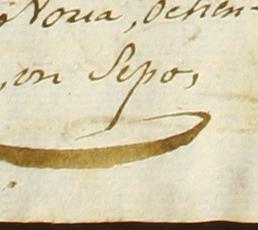 Noua, ochen-
, on Sepo,